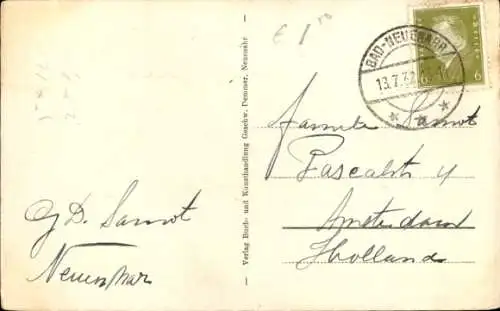 € 1
BAD-NEUENAHR
13.7.32
6
GJD. Samot
Neuenahr
Verlag Buch- und Kunsthandlung Geschw. Pemmer, Neuenahr
Familie Samot
Pascalstr 4
Amsterdam
Holland